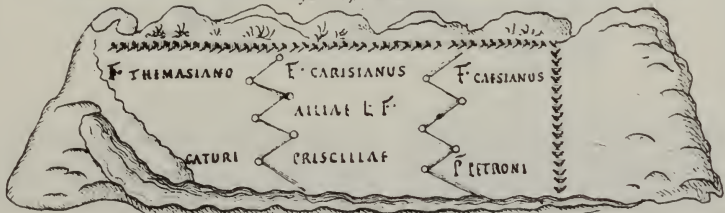 F· THEMASIANO E· CARISIANUS F· CAESIANUS
AILIAE L· F·
CATURI PRISCILLAE P PETRONI